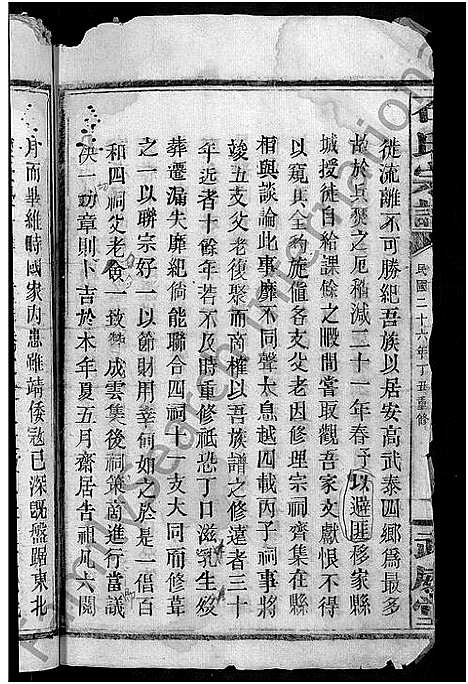 氏宗譜
民國二十六年丁丑重修
徙流離不可勝紀吾族以居安高武泰四鄉為最多
故於兵燹之厄稍減二十一年春予以避匪移家縣
城授徒自給課餘之暇間嘗取觀吾家文獻恨不得
以窺其全豹旋值各支父老因修理宗祠齊集在縣
相與談論此事靡不同聲太息越四載丙子祠事將
竣五支父老復聚而商權以吾族譜之修遠者三十
年近者十餘年若不及時重修祇恐丁口滋乳生歿
葬遷漏失靡紀倘能聯合四祠十一支大同而修葺
之一以聯宗好一以節財用羣何如之於是一倡百
和四祠父老僉一致贊成雲集後祠策商進行當議
決一切章則卜吉於本年夏五月齋居告祖凡六閱
月而畢維時國家內患雖靖倭寇已深旣盤踞東北
FamilySearch International